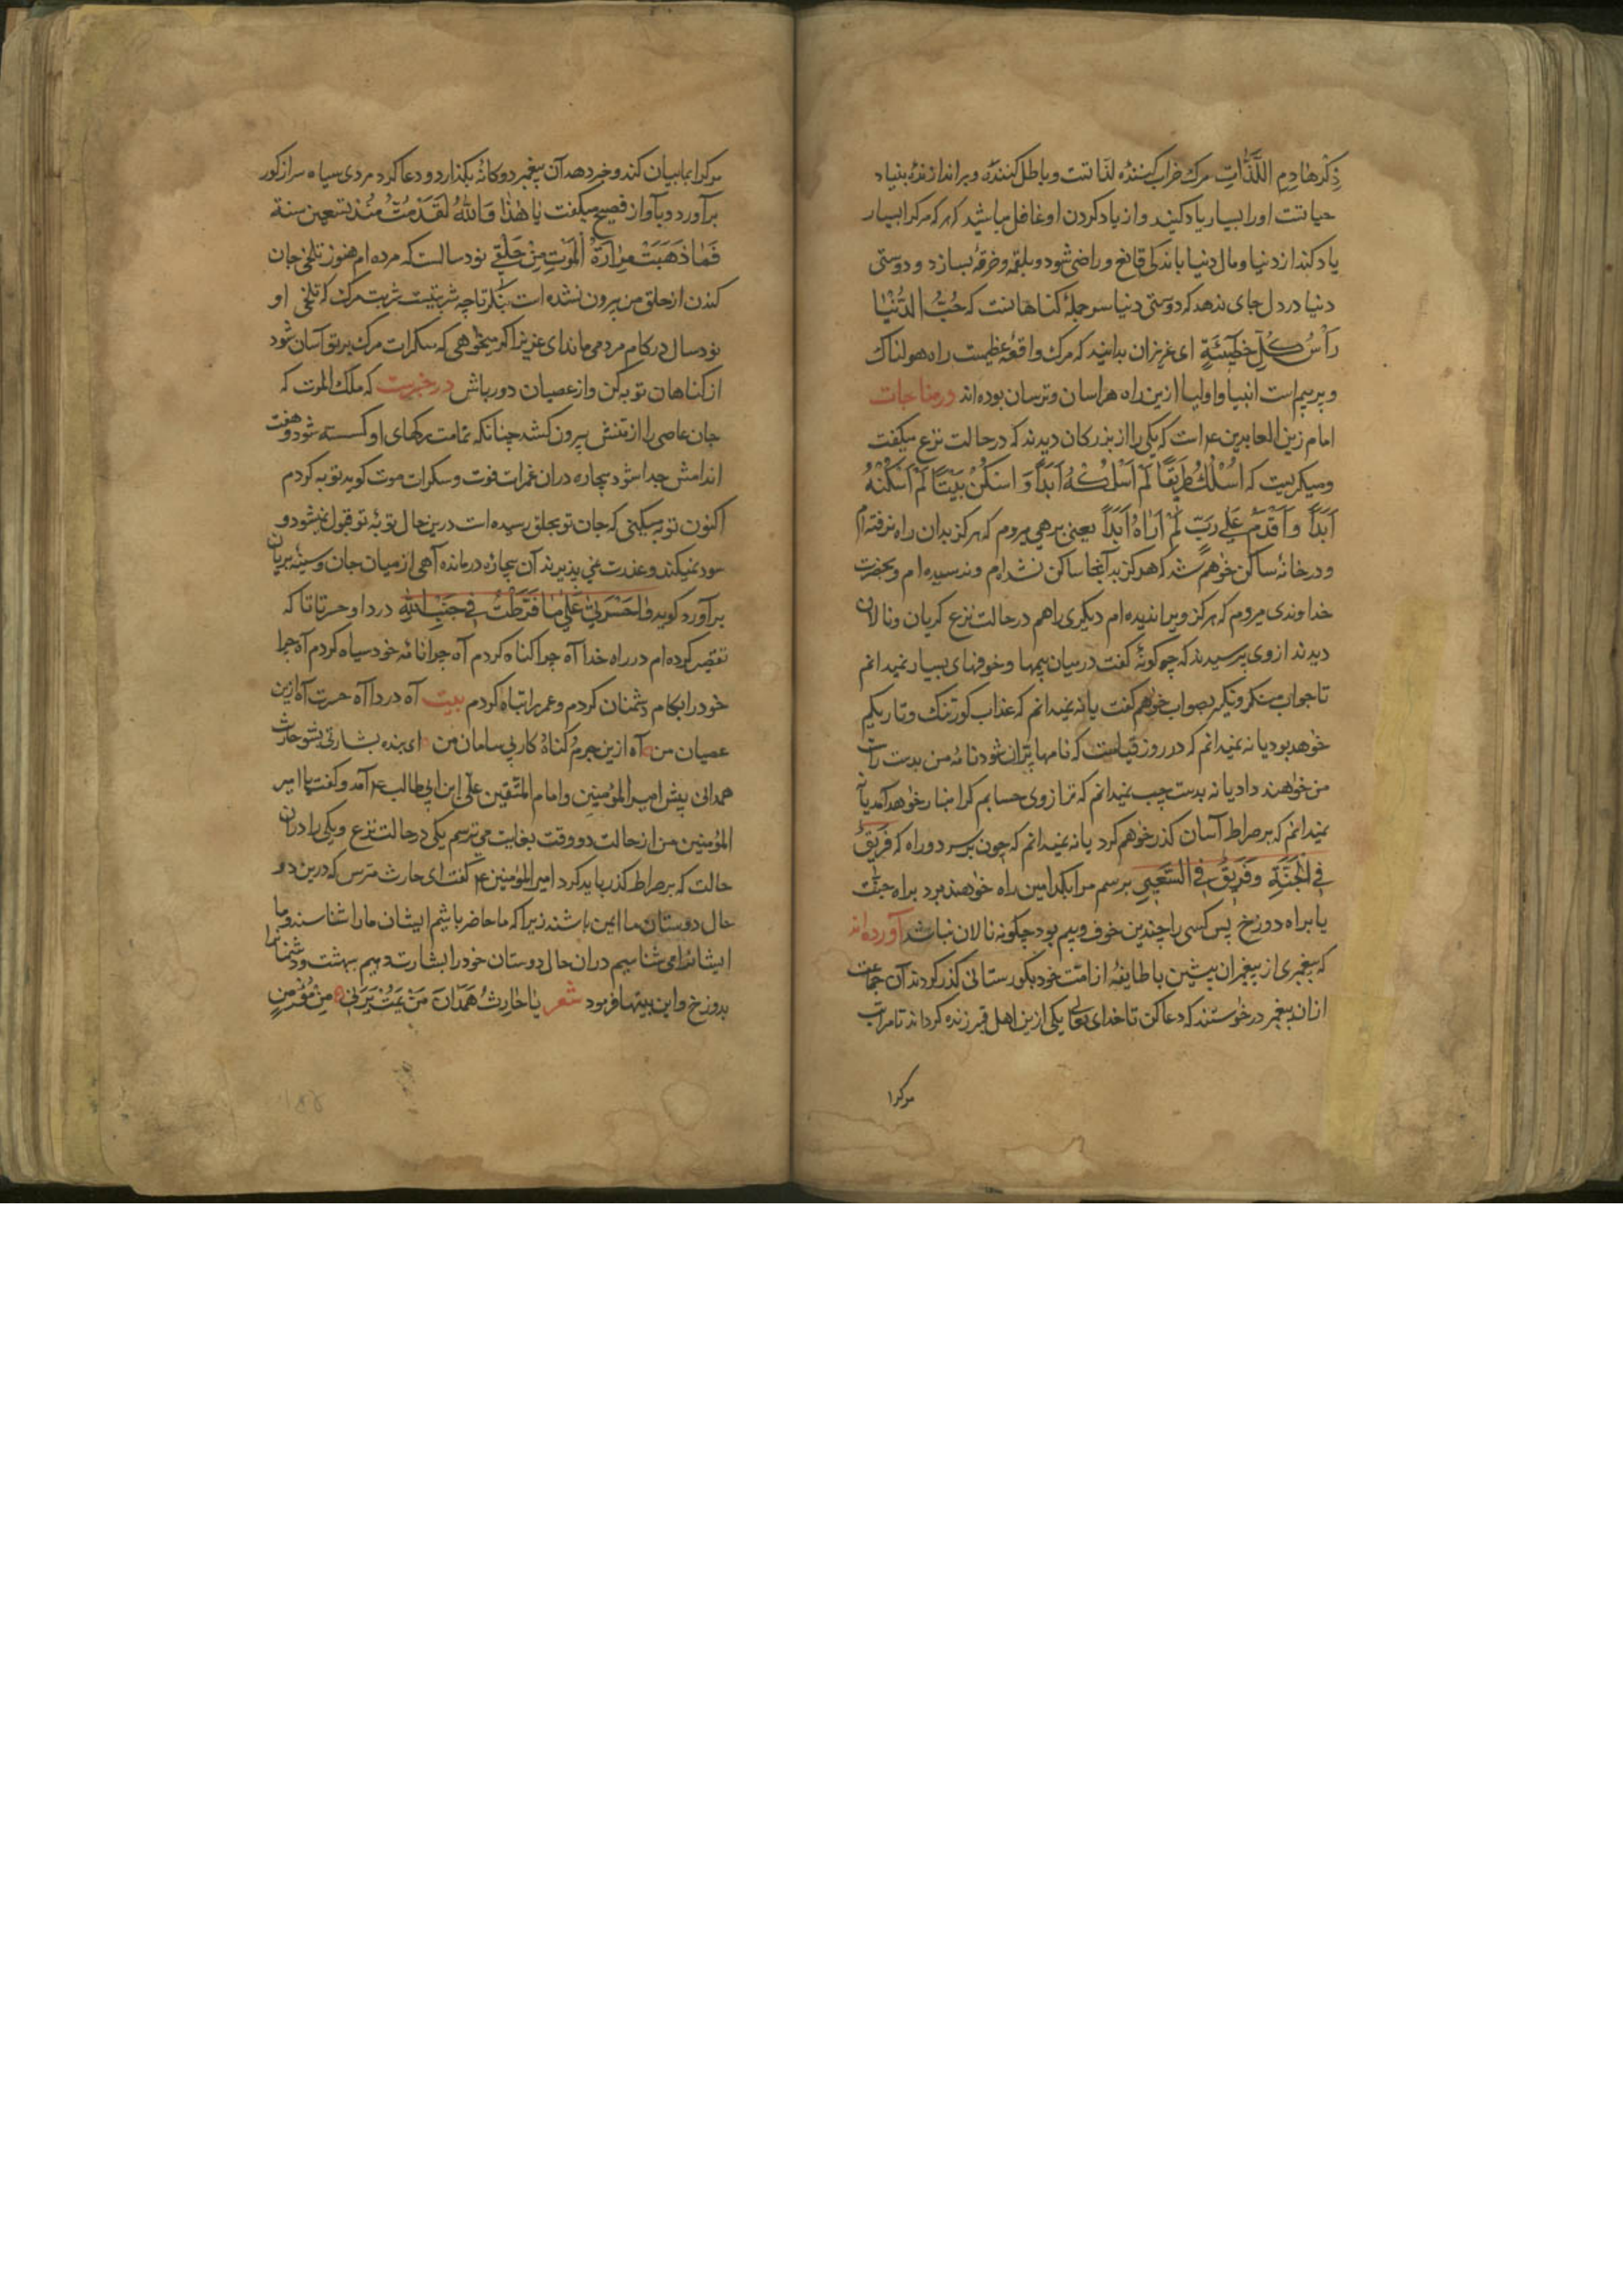 ذِكْرهٰادِمِ اللَّذّٰاتِ مرك خراب كننده لذاتتت و باطل كننده و براندازنده بنياد
حياتتت او را بسيار ياد كنيد و از ياد كردن او غافل مباشيد كه هركه مركرا بسيار
ياد كند از دنيا و مال دنيا باندكى قانع و راضى شود و بلقمه و خرقه بسازد و دوستى
دنيا در دل جاى ندهد كه دوستى دنيا سر جمله كناهانست كه حُبُّ الدُّنْيٰا
رَأْسُ كُلِّ خَطٖيئَةٍ اى عزيزان بدانيد كه مرك واقعه عظيمست راه هولناك
و پر بيم است انبيا و اوليا ازين راه هراسان و ترسان بوده اند در مناجات
امام زين العابدين ع است كه يكى را از بزركان ديدند كه در حالت نزع ميكفت
و ميكريست كه اَسْلُكُ طَرٖيقًا لَمْ اَسْلُكْهُ اَبَدًا وَ اَسْكُنُ بَيْتًا لَمْ اَسْكُنْهُ
اَبَدًا وَ اَقْدَمُ عَلٰى رَبٍّ لَمْ اَرَاهُ اَبَدًا يعنى برهى ميروم كه هركز بدان راه نرفته ام
و در خانه ساكن خواهم شد كه هركز بدآنجا ساكن نشده ام و نرسيده ام و بحضرت
خداوندى ميروم كه هركز ويرا نديده ام ديكرى را هم در حالت نزع كريان و نالان
ديدند از وى پرسيدند كه چه كونه كفت در ميان بيمها و خوفهاى بسيار نميدانم
تا جواب منكر و نكير بصواب خواهم كفت يا نه نميدانم كه عذاب كور تنك و تاريكم
خواهد بود يا نه نميدانم كه در روز قيامت كه نامها پران شود نامه من بدست راست
من خواهند داد يا نه بدست چپ نميدانم كه ترازوى حسابم كرانبار خواهد آمد يا نه
نميدانم كه بر صراط آسان كذر خواهم كرد يا نه نميدانم كه چون بر سر دو راه كه فَرٖيقٌ
فِى الْجَنَّةِ وَ فَرٖيقٌ فِى السَّعٖيرِ برسم مرا بكدامين راه خواهند برد براه جنت
يا براه دوزخ پس كسى را چندين خوف و بيم بود چكونه نالان نباشد آورده اند
كه پيغمبرى از پيغمبران پيشين با طايفه از امت خود بكورستانى كذر كردند آن جماعت
از ان پيغمبر درخواستند كه دعا كن تا خداى تعالى يكى ازين اهل قبر زنده كرداند تا مرارت
مركرا
مركرا بما بيان كند و خبر دهد آن پيغمبر دوكانه بكذارد و دعا كرد مردى سياه سر از كور
برآورد و بآواز فصيح ميكفت يٰا هٰذٰا وَاللّٰهِ لَقَدْ مُتُّ مُنْذُ تِسْعِين سنة
فَمٰا ذَهَبَتْ مِرٰارَةُ الْمَوْتِ مِنْ حَلْقٖى نود سالست كه مرده ام هنوز تلخى جان
كندن از حلق من بيرون نشده است بنكر تا چه شربتيست شربت مرك كه تلخى او
نود سال در كام مردم مى ماند اى عزيز اكر ميخواهى كه سكرات مرك بر تو آسان شود
از كناهان توبه كن و از عصيان دور باش در خبرست كه ملك الموت كه
جان عاصى را از تنش بيرون كشد چنانكه تمامت ركهاى او كسسته شود و هفت
اندامش جدا شود بيچاره دران غمرات فوت و سكرات موت كويد توبه كردم
اكنون توبه ميكنى كه جان تو بحلق رسيده است درين حال توبه تو قبول نميشود و
سود نميكند و عذرت نمى پذيرند آن بيچاره درمانده آهى از ميان جان و سينه بريان
برآورد كويد وٰاحَسْرَتٰى عَلٰى مٰا فَرَّطْتُ فٖى جَنْبِ اللّٰهِ دردا و حسرتا تا كه
تقصير كرده ام در راه خدا آه چرا كناه كردم آه چرا نامه خود سياه كردم آه چرا
خود را بكام دشمنان كردم و عمر را تباه كردم بيت آه دردا آه حسرت آه ازين
عصيان من آه ازين جرم كناه كار بى سامان من اى بنده بشارتى بشنو حارث
همدانى پيش امير المؤمنين و امام المتقين على ابن ابى طالب ع آمد و كفت يا امير
المؤمنين من از حالت دو وقت بغايت مى ترسم يكى در حالت نزع و يكى را دران
حالت كه بر صراط كذر بايد كرد امير المؤمنين ع كفت اى حارث مترس كه درين دو
حال دوستان ما ايمن باشند زيرا كه ما حاضر باشيم ايشان ما را شناسند و ما
ايشانرا مى شناسيم دران حال دوستان خود را بشارت دهيم ببهشت و دشمنانرا
بدوزخ و اين بيتها فرمود شعر يٰا حٰارِثُ هَمْدٰانَ مَنْ يَمُتْ يَرَنٖى مِنْ مُؤْمِنٍ